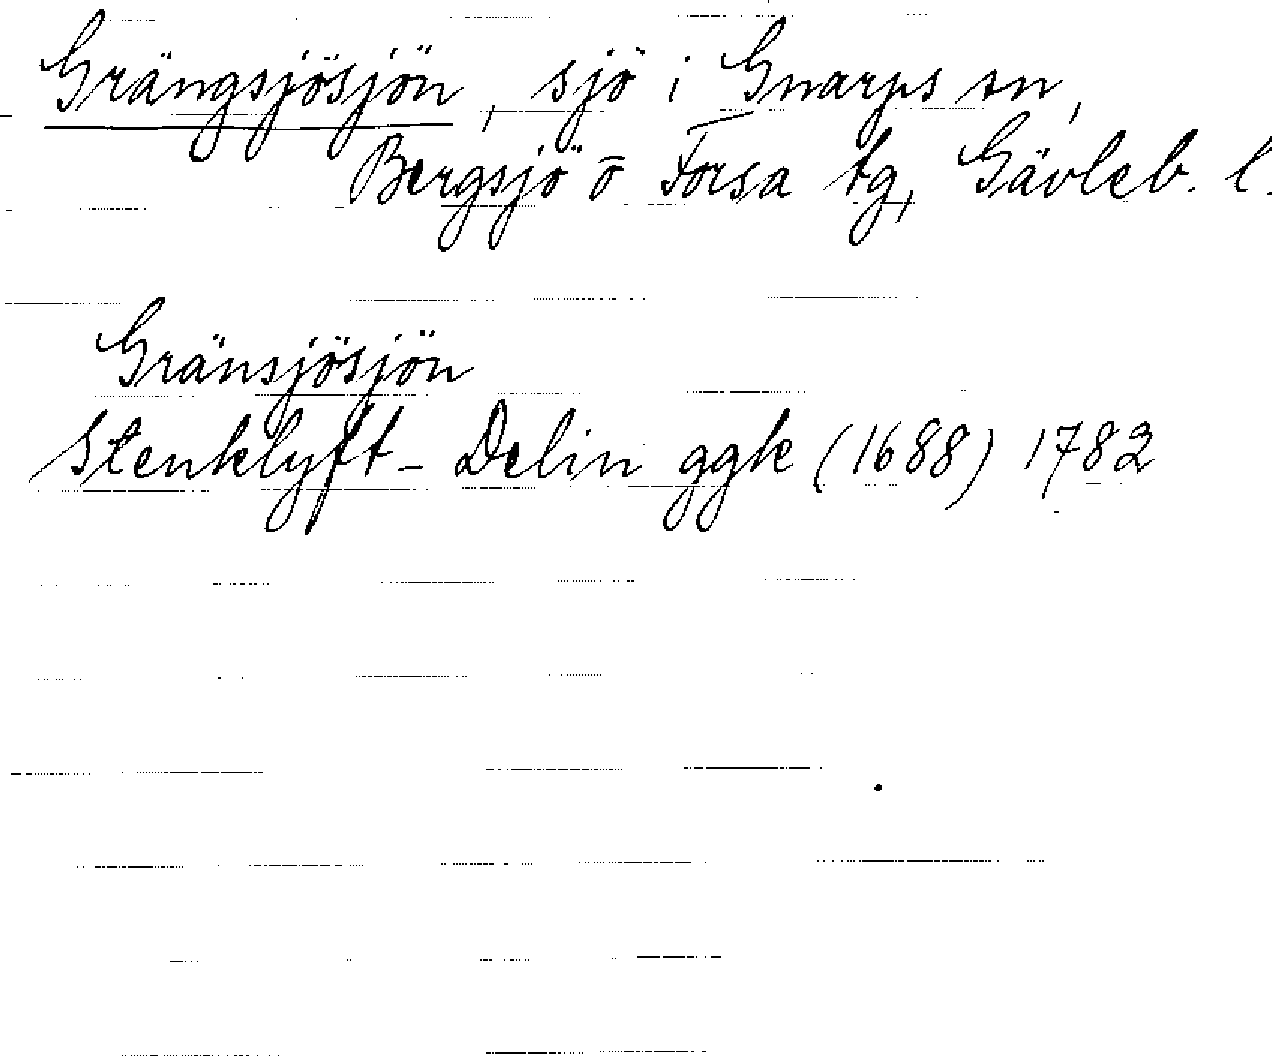 Grängsjösjön, sjö i Gnarps sn,
Bergsjö o Forsa tg, Gävleb. l.
Gränsjösjön
Stenklyft - Delin ggk (1688) 1782